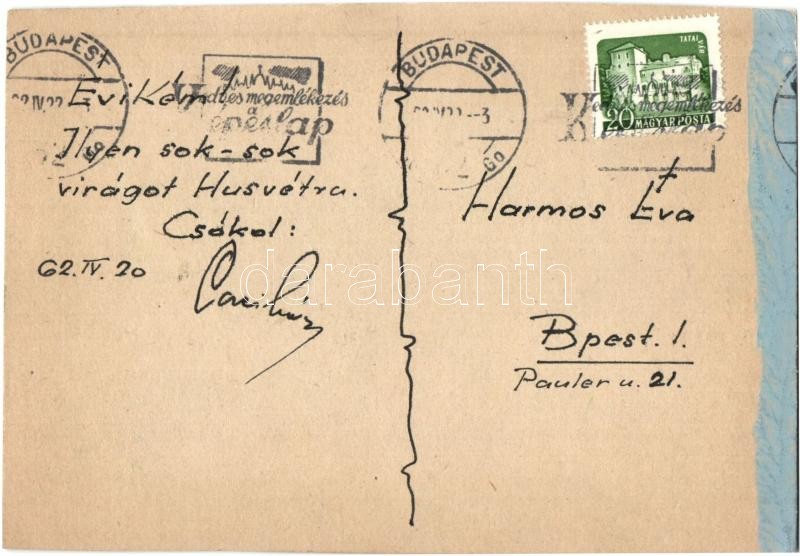 BUDAPEST
Kedves megemlékezés
a
képeslap
BUDAPEST
Kedves megemlékezés
TATAI VÁR
20
MAGYAR POSTA
Evikém!
Ilyen sok-sok
virágot Husvétra.
Csókol:
62.IV.20
Harmos Éva
Bpest. I.
Pauler u. 21.
darabanth